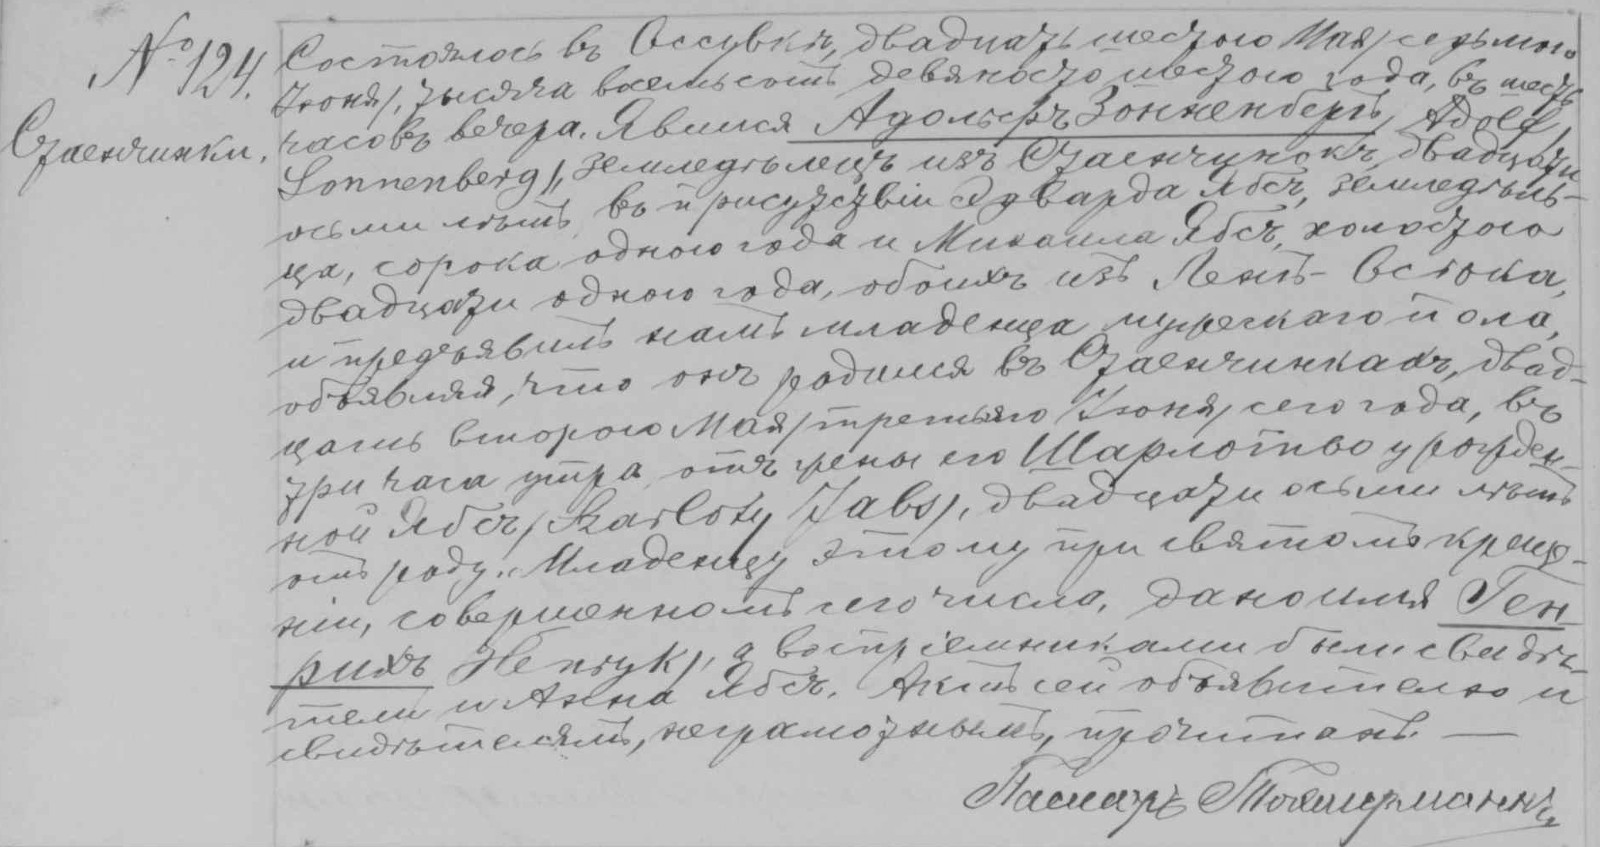 № 124.
Стаенчинки.
Состоялось въ Оссувкѣ, двадцать шестого Мая /седьмого
Іюня/, тысяча восемьсотъ девяносто шестого года, въ шесть
часовъ вечера. Явился Адольфъ Зонненбергъ /Adolf
Sonnenberg/, земледѣлецъ изъ Стаенчинокъ, двадцати
осьми лѣтъ, въ присутствіи Эдварда Ябсъ, земледѣль-
ца, сорока одного года и Михаила Ябсъ, холостого
двадцати одного года, обоихъ изъ Ленъ-Остова,
и предъявилъ намъ младенца мужескаго пола,
объявляя, что онъ родился въ Стаенчинкахъ, двад-
цать второго Мая /третьяго Іюня/ сего года, въ
три часа утра, отъ жены его Шарлоттью урожден-
ной Ябсъ /Szarloty Jabs/, двадцати осьми лѣтъ
отъ роду. Младенцу этому при святомъ креще-
ніи, совершенномъ сего числа, дано имя Ген
рихъ /Henryk/, а воспріемниками были свидѣ-
тели и Анна Ябсъ. Актъ сей объявителю и
свидѣтелямъ, неграмотнымъ, прочитанъ. —
Пасторъ